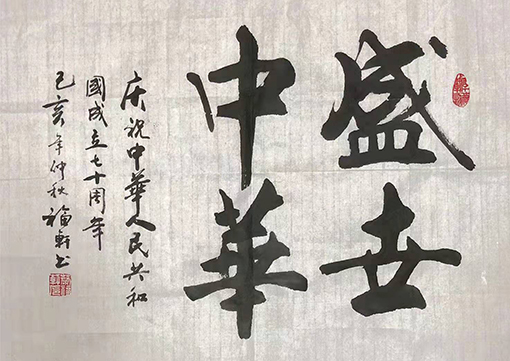 盛世
中華
庆祝中華人民共和
國成立七十周年
己亥年仲秋福軒书